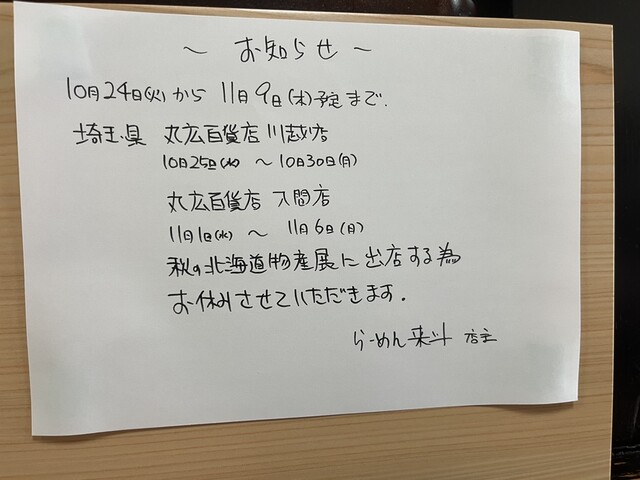 ～ お知らせ ～
10月24日(火)から 11月9日(木)予定まで.
埼玉県 丸広百貨店 川越店
10月25日(水) ～ 10月30日(月)
丸広百貨店 入間店
11月1日(水) ～ 11月6日(月)
秋の北海道物産展に出店する為
お休みさせていただきます.
らーめん来斗 店主